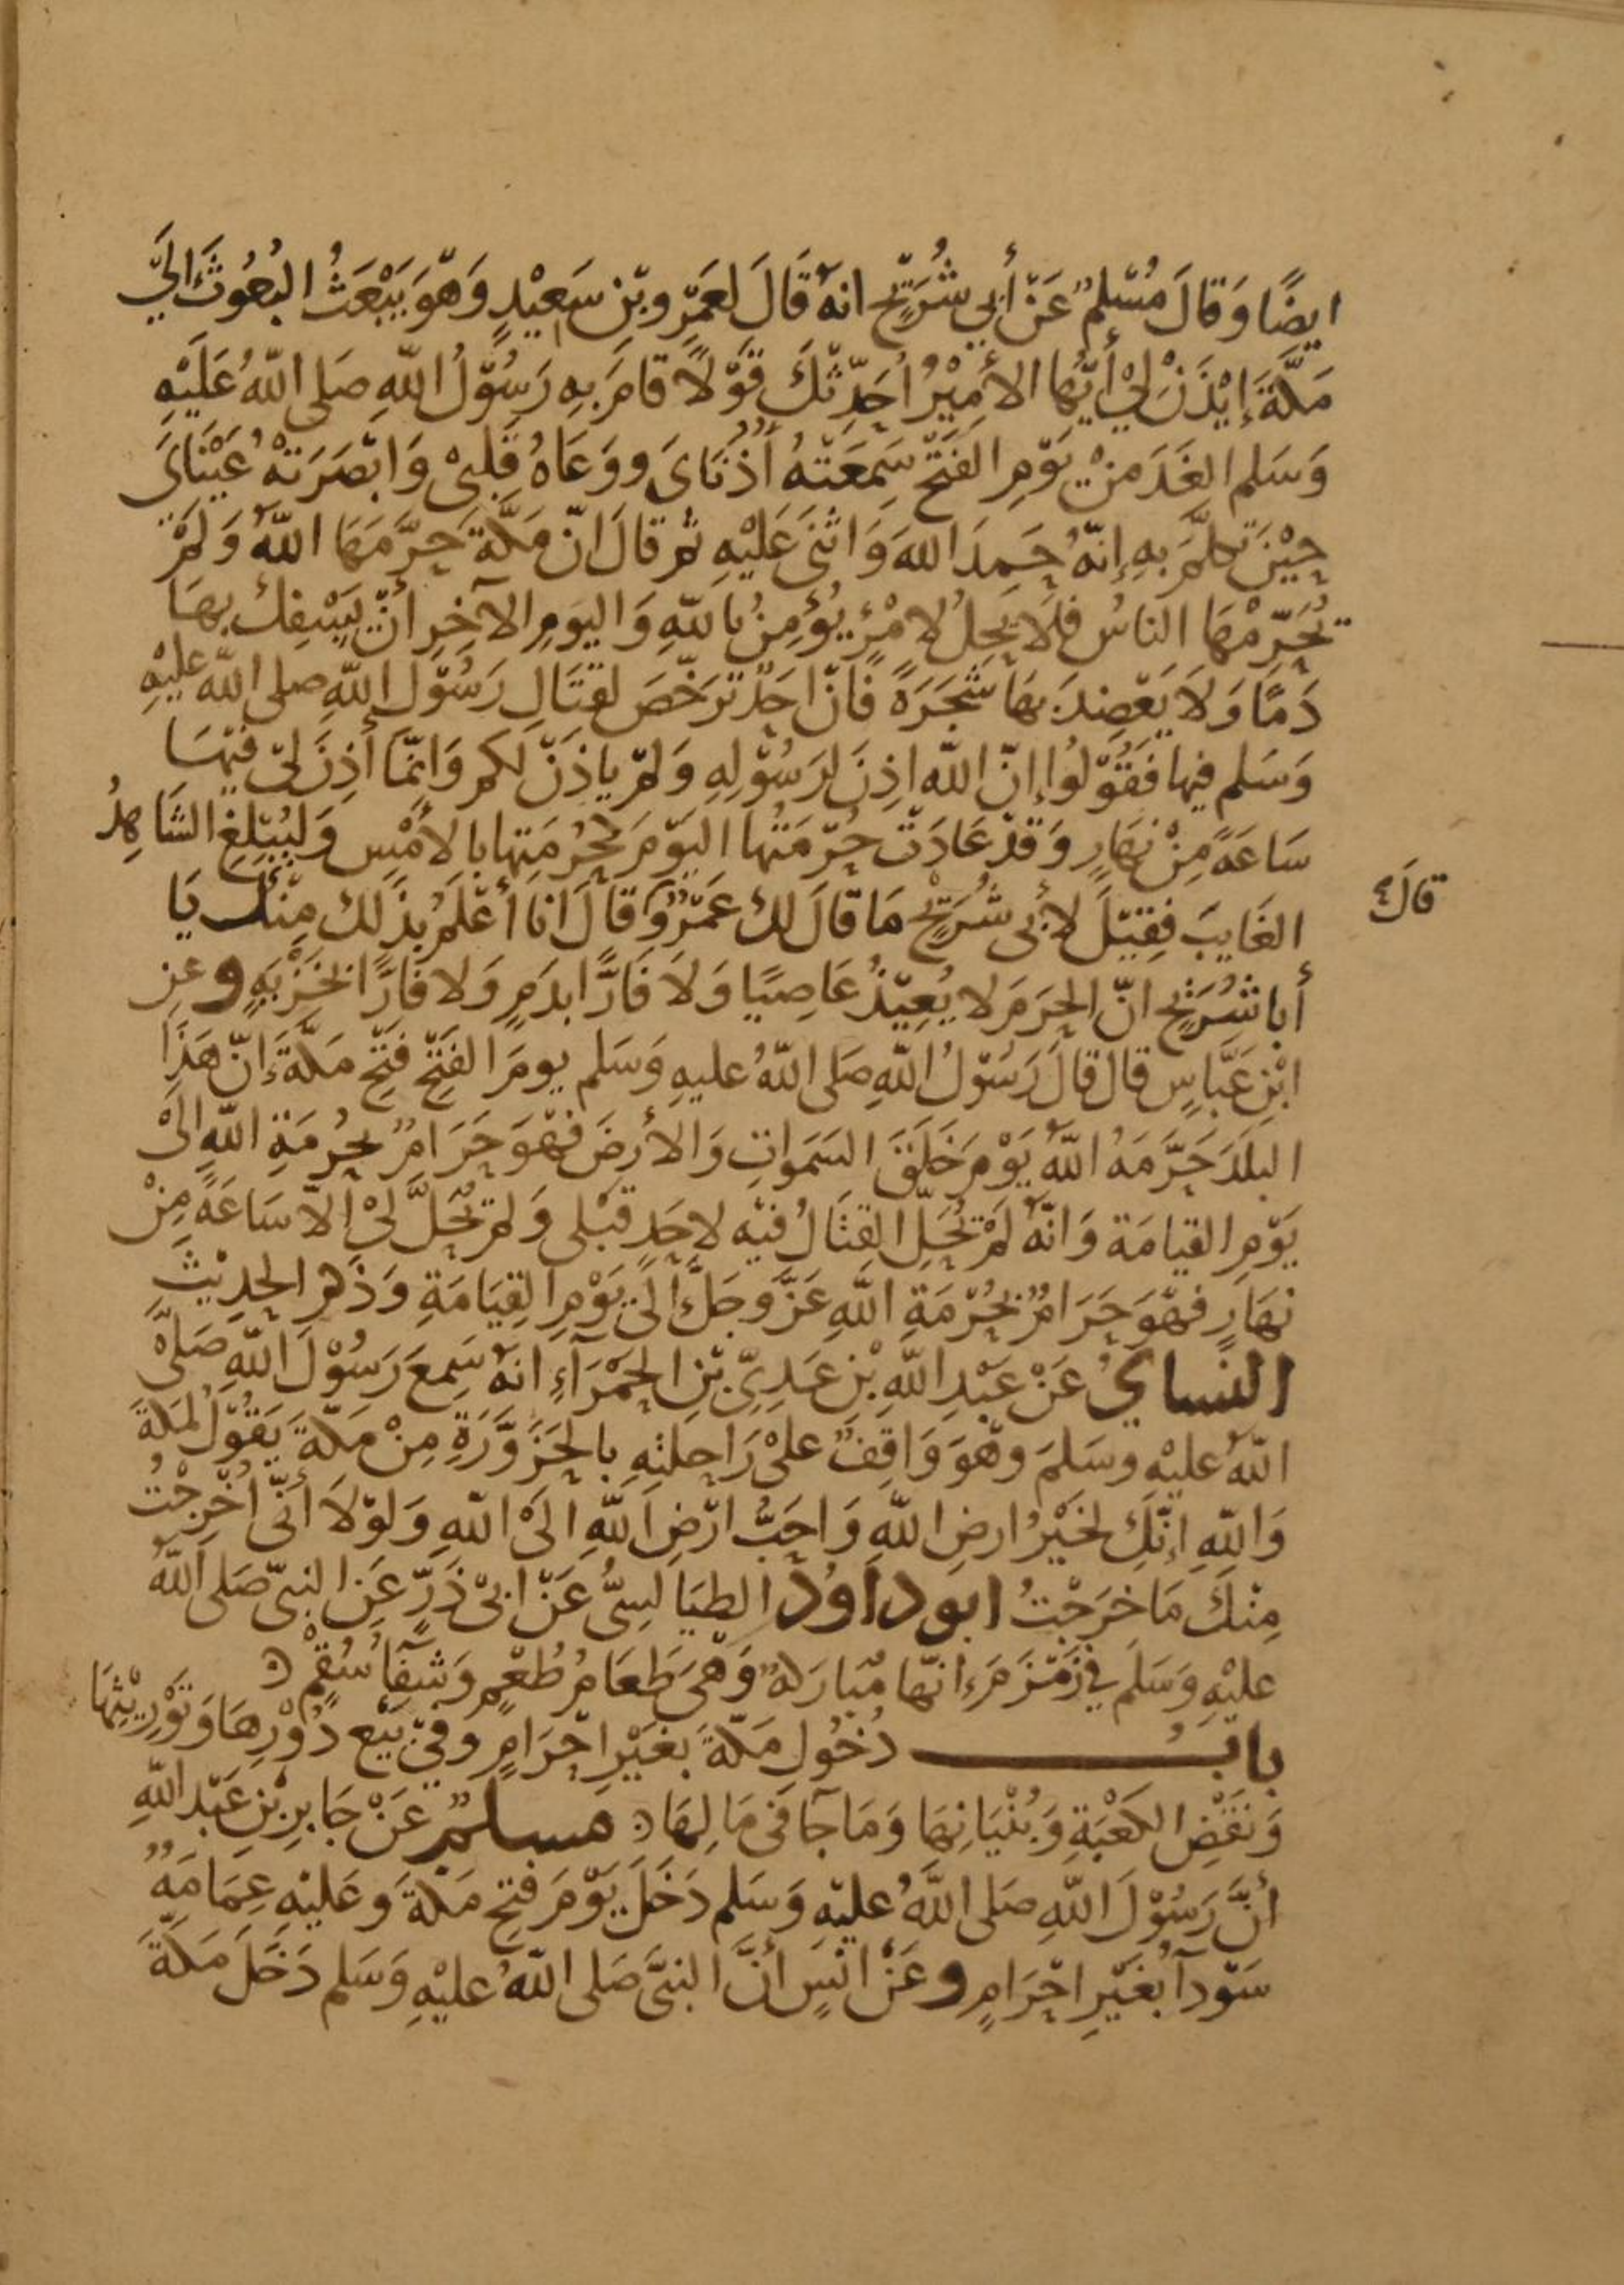 ايضًا وَقالَ مُسْلِمٌ عَنْ أَبي شُرَيْحٍ انهُ قَالَ لِعَمْرِو بْنِ سَعِيْدٍ وَهْوَ يَبْعَثُ البُعُوثَ اليَ
مَكَّةَ إِيْذَنْ لِيْ أَيّها الأَمِيْرُ أُحَدِّثْكَ قَوْلاً قامَ بِهِ رَسُوْلُ اللّهِ صَلى اللّهُ عَلَيْهِ
وَسَلم الغَدَ مِنْ يَوْمِ الفَتْحِ سَمِعَتْهُ أُذُنَايَ وَوَعَاهُ قَلْبِىْ وَابْصَرَتْهُ عَيْنَايَ
حِيْنَ تكلَّمَ بِهِ إِنّهُ حَمِدَ اللهَ وَاثْنَى عَلَيْهِ ثم قالَ انّ مَكَّةَ حَرَّمَهَا اللّهُ وَلَمْ
يُحَرِّمْهَا الناسُ فلَا يَحِلُ لامْرِئٍ يُؤمِنُ باللّهِ وَاليَومِ الآخِرِ أنْ يَسْفِكَ بِهَا
دَمًا وَلاَ يَعْضِدَ بِهَا شَجَرَةً فَانْ احَدٌ تَرَخّصَ لِقتَالِ رَسُوْلِ اللّهِ صلى اللّه عليْهِ
وَسَلم فيها فَقُوْلُوا إنّ اللّه اذِنَ لِرَسُوْلِهِ وَلمْ ياذَنْ لكم وَانمّا أُذِنَ لِىْ فيْهَا
سَاعَةً مِنْ نهَارٍ وَقدْ عَادَتْ حُرْمَتُها اليَوْمَ كَحُرْمَتِها بالأَمْسِ وَليُبَلِّغِ الشَاهِدُ
الغَايبَ فقِيْلَ لأبى شُرَيْحٍ مَا قالَ لكَ عَمْرٌو قالَ انا أَعْلَمُ بذَلك مِنْكَ يَا
قالَ
أَبا شُرَيْحٍ انّ الحَرَمَ لا يُعِيْذُ عَاصِيًا وَلاَ فَارًّا بدَمٍ وَلا فَارًّا بخَزْبَةٍ وعن
ابْنِ عَبَّاسٍ قال قالَ رَسُوْلُ اللّهِ صَلى اللّهُ عليهِ وَسَلم يومَ الفَتْحِ فتْحِ مَكَّةَ إنّ هَذَا
البلَدَ حَرَّمَهُ اللّهُ يَوْمَ خَلَقَ السَمَواتِ وَالأرضَ فهْوَ حَرَامٌ بحُرمَةِ اللّهِ الىْ
يَوْمِ القيامَة وَانّهُ لَمْ يَحِلّ القِتَالُ فيْهِ لاحَدٍ قبْلى وَلم يَحِلّ لىْ الاّ سَاعَةً مِنْ
نهَارٍ فهْوَ حَرَامٌ بحُرْمَةِ اللّهِ عَزَّ وجَلَّ الىْ يَوْمِ القِيَامَةِ وَذَكر الحَدِيْثَ
النساىُ عَنْ عَبْدِ اللّهِ بْنِ عَدِيّ بْنِ الحَمْرَآءِ انهُ سَمِعَ رَسُوْلَ اللّهِ صَلىْ
اللّهُ عليْهِ وسَلمَ وهْوَ وَاقِفٌ علىْ رَاحِلتِهِ بالحَزْوَرَةِ مِنْ مَكّةَ يَقُوْلُ لمَكّةَ
وَاللّهِ إنّكِ لخَيْرُ ارضِ اللّهِ وَاحَبُّ ارْضِ اللّهِ الىْ اللّهِ وَلوْلاَ أنّى أُخْرِجْتُ
مِنْكِ مَا خرَجْتُ ابو داوُدَ الطيَالسىُّ عَنْ ابىْ ذَرٍّ عَنِ النبىّ صَلى اللّهُ
عليْهِ وَسَلم في زَمْزَمَ انّها مُبَارَكةٌ وَهْىَ طَعَامُ طُعْمٍ وَشفآءُ سُقْمٍ
بابُ دُخُولِ مَكّةَ بغَيْرِ احْرَامٍ وفي بَيْع دُوْرِهَا وَتَوْرِيْثِهَا
وَنَقْضِ الكَعْبَةِ وَبُنْيَانِهَا وَمَا جآ فى مَالِهَا مسلمٌ عَنْ جَابِرِ بْنِ عَبْدِ اللّهِ
أَنَّ رَسُوْلَ اللّهِ صَلى اللّهُ عليْهِ وَسَلم دَخَلَ يَوْمَ فتْحِ مَكّةَ وَعَليْهِ عِمَامَةٌ
سَوْدآءُ بغَيْرِ احْرَامٍ وعَنْ انَسٍ أَنَّ النبىَّ صَلى اللّهُ عليْهِ وَسَلم دَخَلَ مَكّةَ